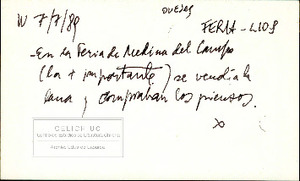 ovejas
W 7/7/89
FERIA - LIOS
- En la Feria de Medina del Campo
(la + importante) se vendía la
lana y compraban los piensos.
CELICH UC